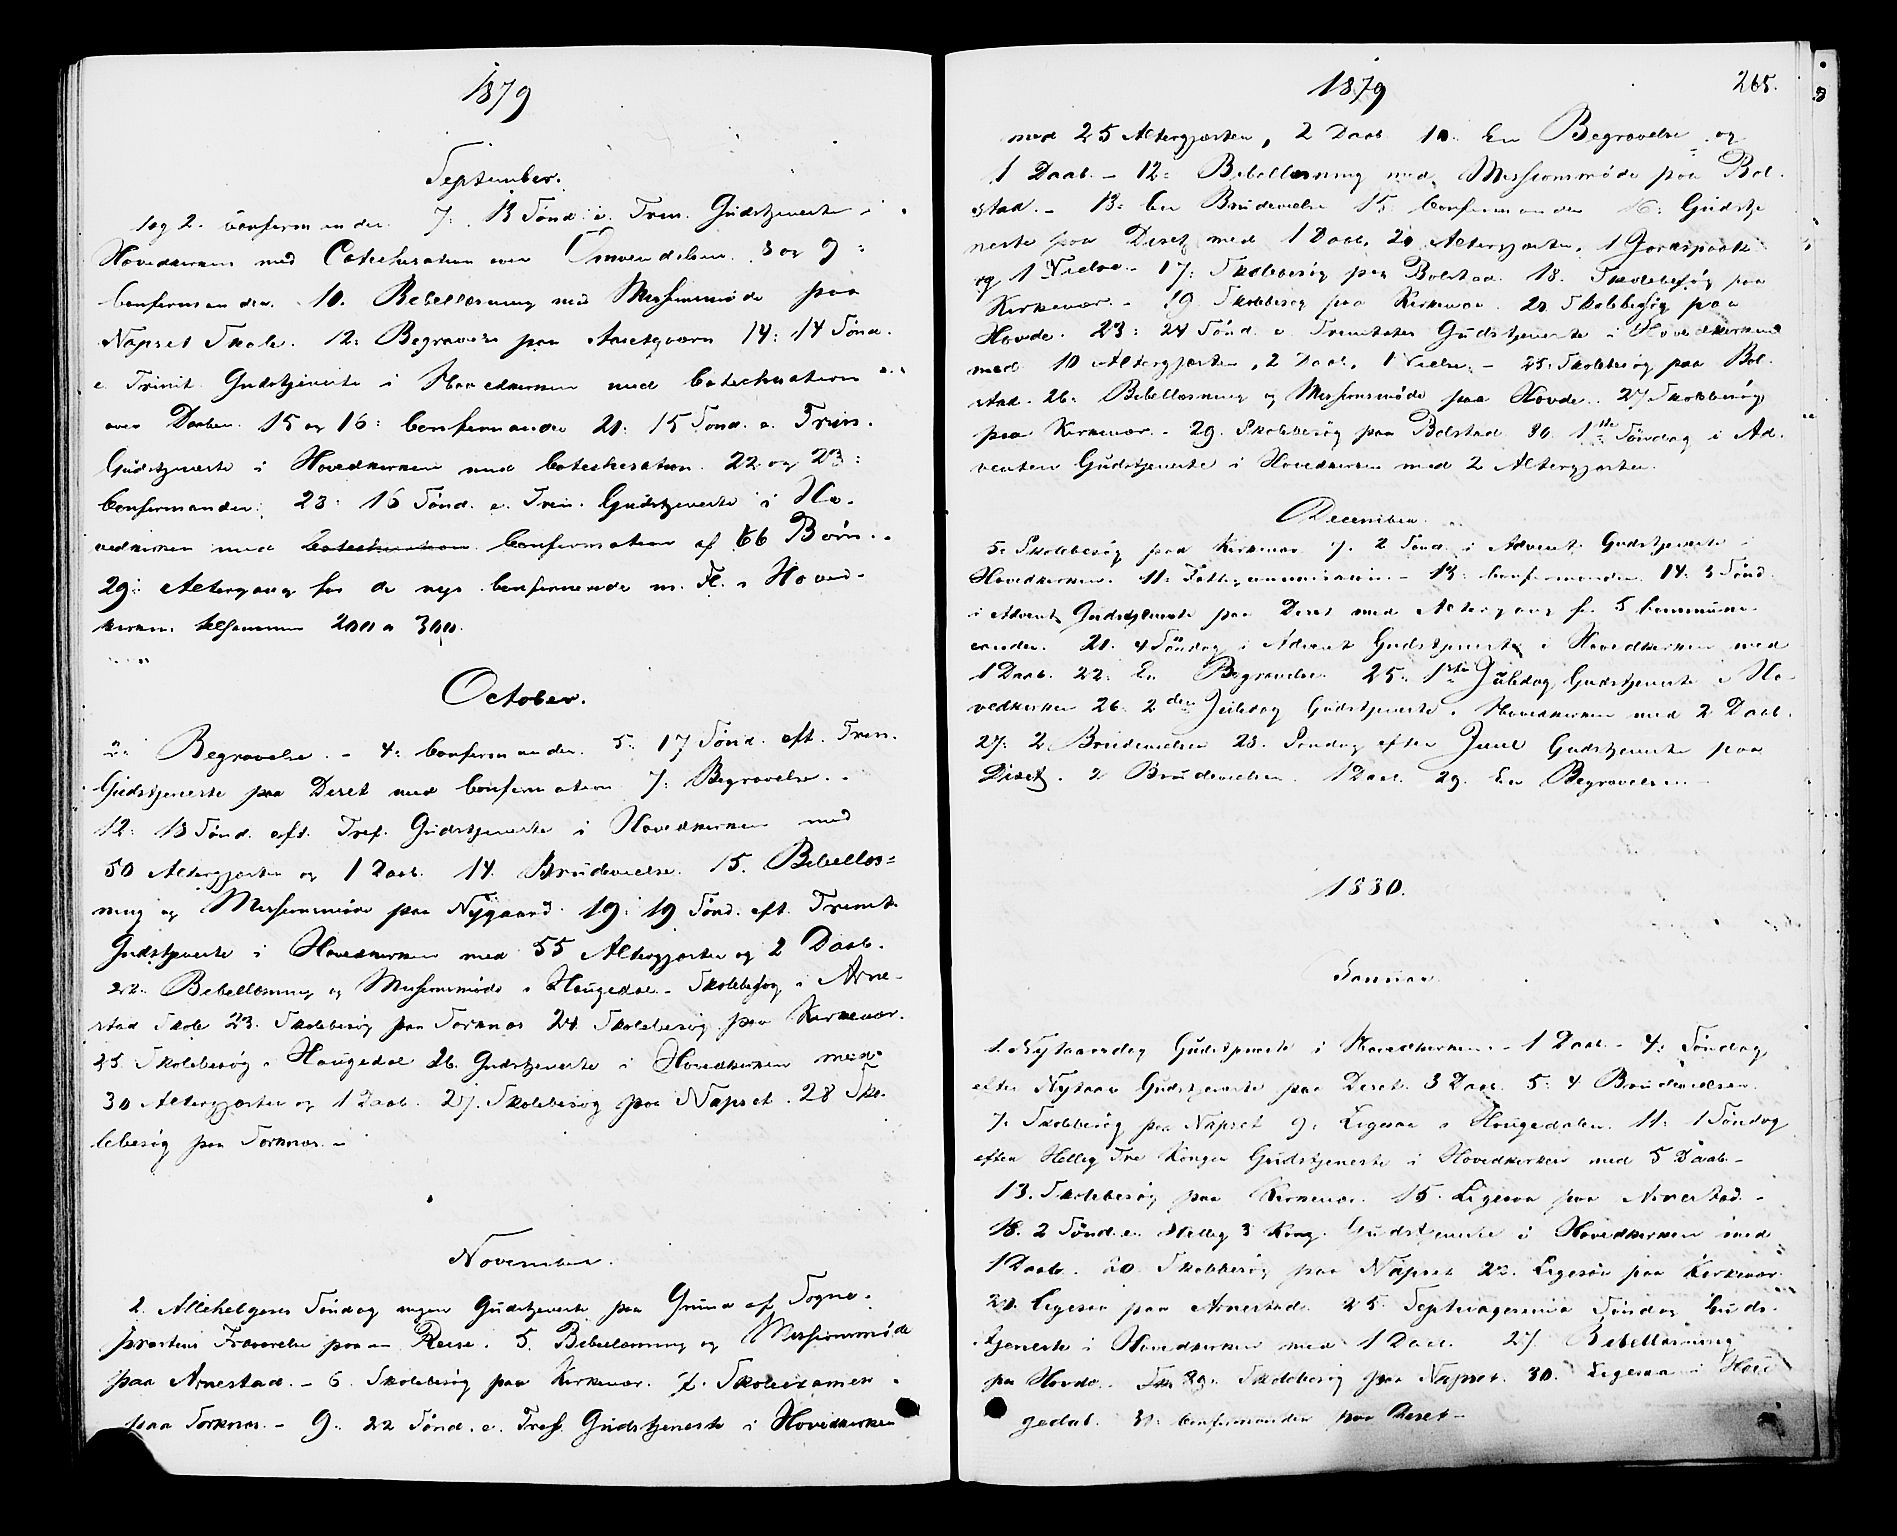 1879
September.
1 og 2. Confermander. 7: 13 Sønd: e. Trin. Gudstjeneste i
Hovedkirken med Catechisation over Omvendelsen. 8 og 9:
Confermander. 10. Bibellæsning med Missionsmøde paa
Napset Skole. 12: Begravelse paa 14: 14 Sønd.
e. Trinit. Gudstjeneste i Hovedkirken med Catechisation
over Daaben. 15 og 16: Confermander 21: 15 Sønd. e. Trin.
Gudstjeneste i Hovedkirken med Catechisation. 22 og 23:
Confermander. 28: 16 Sønd. e. Trin. Gudstjeneste i Ho-
vedkirken med Catechisation Confermation af 66 Børn.
29: Altergang for de nye Confermerede m. Fl. i Hoved-
kirken tilsammen 200 a 300.
October.
2: Begravelse. - 4: Confermander. 5: 17 Sønd. eft. Trin.
Gudstjeneste paa Deset med Confermation 7: Begravelse. -
12: 18 Sønd. eft. Tref. Gudstjeneste i Hovedkirken med
50 Altergjæster og 1 Daab. 14. Brudevielse. 15. Bibellæs-
ning og Missionsmøde paa Nygaard. 19: 19 Sønd. eft. Trinit.
Gudstjeneste i Hovedkirken med 55 Altergjæster og 2 Daab.
22. Bibellæsning og Missionsmøde i Haugedal. Skolebesøg i Arne-
stad Skole 23. Skolebesøg paa Torknæs 24. Skolebesøg paa Kirkevær.
25. Skolebesøg i Haugedal 26. Gudstjeneste i Hovedkirken med
30 Altergjæster og 1 Daab. 27. Skolebesøg paa Napset. 28 Sko-
lebesøg paa Torknæs. -
November.
2. Allehelgens Søndag ingen Gudstjeneste paa Grund af Sogne-
præstens Fraværelse paa en Reise. 5. Bibellæsning og Missionsmøde
paa Arnestad. - 6. Skolebesøg paa Kirkevær. 7. Skoleexamen
paa Torknæs. - 9: 22 Sønd. e. Tref. Gudstjeneste i Hovedkirken
1879
265.
med 25 Altergjæster, 2 Daab 10. En Begravelse og
1 Daab. - 12: Bibellæsning med Missionsmøde paa Bol-
stad. - 13: En Brudevielse 15. Confermander 16: Gudstje
neste paa Deset med 1 Daab, 20 Altergjæster, 1 Jordspaakastelse
og 1 Vielse. - 17: Skolebesøg paa Bolstad. 18. Skolebesøg paa
Kirkevær. - 19. Skolebesøg paa Kirkevær. 20 Skolebesøg paa
Hovde. 23: 24 Sønd. e. Trinitatis Gudstjeneste i Hovedkirken
med 10 Altergjæster, 2 Daab, 1 Vielse. - 25. Skolebesøg paa Bol-
stad. 26. Bibellæsning og Missionsmøde paa Hovde. 27 Skolebesøg
paa Kirkevær. - 29. Skolebesøg paa Bolstad 30. 1ste Søndag i Ad-
venten Gudstjeneste i Hovedkirken med 2 Altergjæster.
December.
5. Skolebesøg paa Kirkevær 7. 2 Sønd. i Advent Gudstjeneste i
Hovedkirken. 11: Fattigcommission - 13: Confermander. 14. 3 Sønd.
i Advent Gudstjeneste paa Deset med Altergang for 5 Communi-
canter. 21. 4 Søndag i Advent Gudstjeneste i Hovedkirken med
1 Daab. 22. En Begravelse 25. 1ste Juledag Gudstjeneste i Ho-
vedkirken 26. 2den Juledag Gudstjeneste i Hovedkirken med 2 Daab.
27: 2 Brudevielser 28. Søndag efter Juul Gudstjeneste paa
Deset. 2 Brudevielser. 1 Daab. 29. En Begravelse.
1880.
Januar.
1. Nytaarsdag Gudstjeneste i Hovedkirken. - 1 Daab - 4: Søndag
efter Nytaar Gudstjeneste paa Deset. 3 Daab. 5: 4 Brudevielser
7. Skolebesøg paa Napset 9: Ligesaa i Haugedalen. 11: 1 Søndag
efter Hellig Tre Konger Gudstjeneste i Hovedkirken med 5 Daab. -
13. Skolebesøg paa Kirkevær. 15. Ligesaa paa Arnestad. -
18. 2 Sønd. e. Hellig 3 Kong. Gudstjeneste i Hovedkirken med
1 Daab. 20. Skolebesøg paa Napset 22. Ligesaa paa Kirkevær
24. Ligesaa paa Arnestad. 25. Septuagesima Søndag Guds-
tjeneste i Hovedkirken med 1 Daab. 27. Bibellæsning
paa Hovde. 29. Skolebesøg paa Napset. 30. Ligesaa i Hau
gedal. 31: Confermander paa Deset -